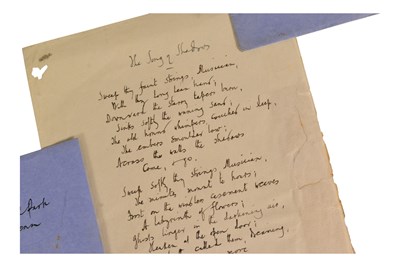 The Song of Shadows
Sweep thy faint strings, Musician,
With thy long lean hand;
Downward the starry tapers burn,
Sinks soft the waning sand;
The old hound whimpers couched in sleep,
The embers smoulder low;
Across the walls the shadows
Come, & go.
Sweep softly thy strings, Musician,
The minutes mount to hours;
Frost on the windless casement weaves
A labyrinth of flowers;
Ghosts linger in the darkening air,
Hearken at the open door;
called them, dreaming,
more
Park